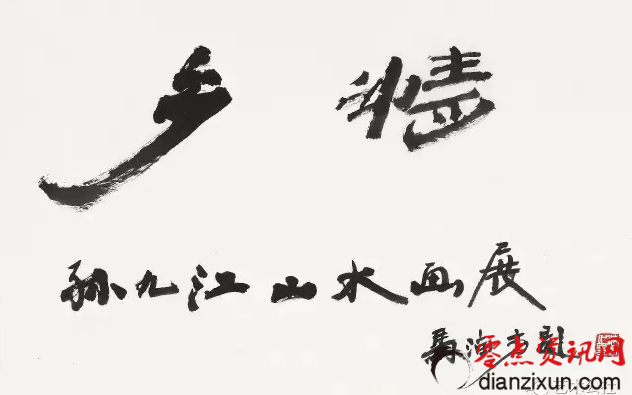 乡情
孙九江山水画展
零点资讯网
dianzixun.com